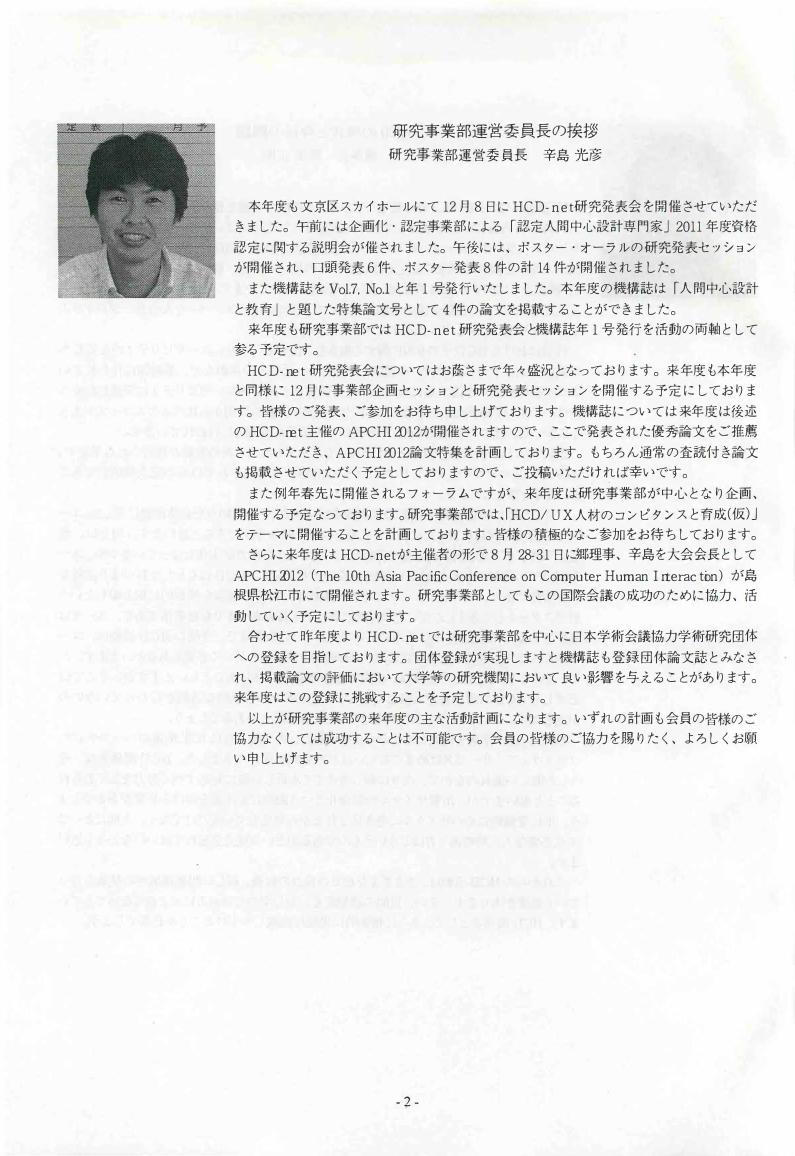 定 表 月 予
研究事業部運営委員長の挨拶
研究事業部運営委員長 辛島 光彦
本年度も文京区スカイホールにて 12 月 8 日に HCD-net研究発表会を開催させていただ
きました。午前には企画化・認定事業部による「認定人間中心設計専門家」2011 年度資格
認定に関する説明会が催されました。午後には、ポスター・オーラルの研究発表セッション
が開催され、口頭発表 6 件、ポスター発表 8 件の計 14 件が開催されました。
また機構誌を Vol.7, No.1 と年 1 号発行いたしました。本年度の機構誌は「人間中心設計
と教育」と題した特集論文号として 4 件の論文を掲載することができました。
来年度も研究事業部では HCD-net 研究発表会と機構誌年 1 号発行を活動の両軸として
参る予定です。
HCD-net 研究発表会についてはお蔭さまで年々盛況となっております。来年度も本年度
と同様に 12 月に事業部企画セッションと研究発表セッションを開催する予定にしておりま
す。皆様のご発表、ご参加をお待ち申し上げております。機構誌については来年度は後述
の HCD-net 主催の APCHI 2012が開催されますので、ここで発表された優秀論文をご推薦
させていただき、APCHI 2012論文特集を計画しております。もちろん通常の査読付き論文
も掲載させていただく予定としておりますので、ご投稿いただければ幸いです。
また例年春先に開催されるフォーラムですが、来年度は研究事業部が中心となり企画、
開催する予定なっております。研究事業部では、「HCD/UX人材のコンピタンスと育成(仮)」
をテーマに開催することを計画しております。皆様の積極的なご参加をお待ちしております。
さらに来年度は HCD-netが主催者の形で 8 月 28-31 日に郷理事、辛島を大会会長として
APCHI 2012（The 10th Asia Pacific Conference on Computer Human Interaction）が島
根県松江市にて開催されます。研究事業部としてもこの国際会議の成功のために協力、活
動していく予定にしております。
合わせて昨年度より HCD-net では研究事業部を中心に日本学術会議協力学術研究団体
への登録を目指しております。団体登録が実現しますと機構誌も登録団体論文誌とみなさ
れ、掲載論文の評価において大学等の研究機関において良い影響を与えることがあります。
来年度はこの登録に挑戦することを予定しております。
以上が研究事業部の来年度の主な活動計画になります。いずれの計画も会員の皆様のご
協力なくしては成功することは不可能です。会員の皆様のご協力を賜りたく、よろしくお願
い申し上げます。
- 2 -